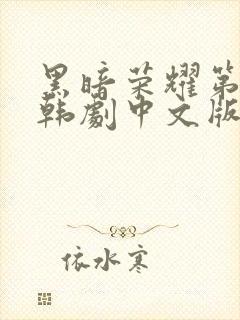 黑暗荣耀第
韩劇中文版
依水寒